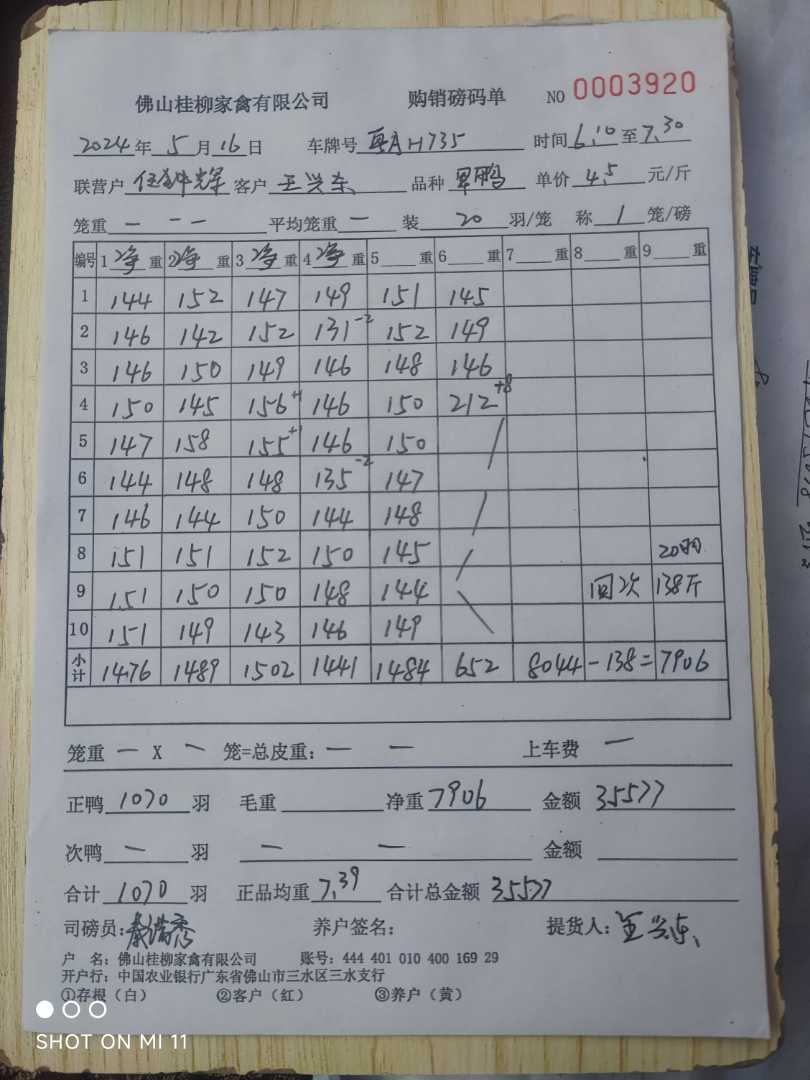 佛山桂柳家禽有限公司 购销磅码单 NO 0003920
2024年 5月16日 车牌号 H735 时间6.10至7.30
联营户 客户 王兴东 品种 鸭 单价 4.5 元/斤
笼重 — — — 平均笼重 — 装 20 羽/笼 称 1 笼/磅
编号 1净重 2净重 3净重 4净重 5重 6重 7重 8重 9重
1 144 152 147 149 151 145
2 146 142 152 131-2 152 149
3 146 150 149 146 148 146
4 150 145 156+1 146 150 212+8
5 147 158 155+1 146 150 /
6 144 148 148 135-2 147
7 146 144 150 144 148 /
8 151 151 152 150 145 / 20羽
9 151 150 150 148 144 \ 回次 138斤
10 151 149 143 146 149
小计 1476 1489 1502 1441 1484 652 8044 -138= 7906
笼重 — X — 笼=总皮重: — — 上车费 —
正鸭 1070 羽 毛重 净重 7906 金额 35577
次鸭 — 羽 — — 金额
合计 1070 羽 正品均重 7.39 合计总金额 35577
司磅员: 养户签名: 提货人: 王兴东
户 名: 佛山桂柳家禽有限公司 账号: 444 401 010 400 169 29
开户行: 中国农业银行广东省佛山市三水区三水支行
①存根(白) ②客户(红) ③养户(黄)
SHOT ON MI 11